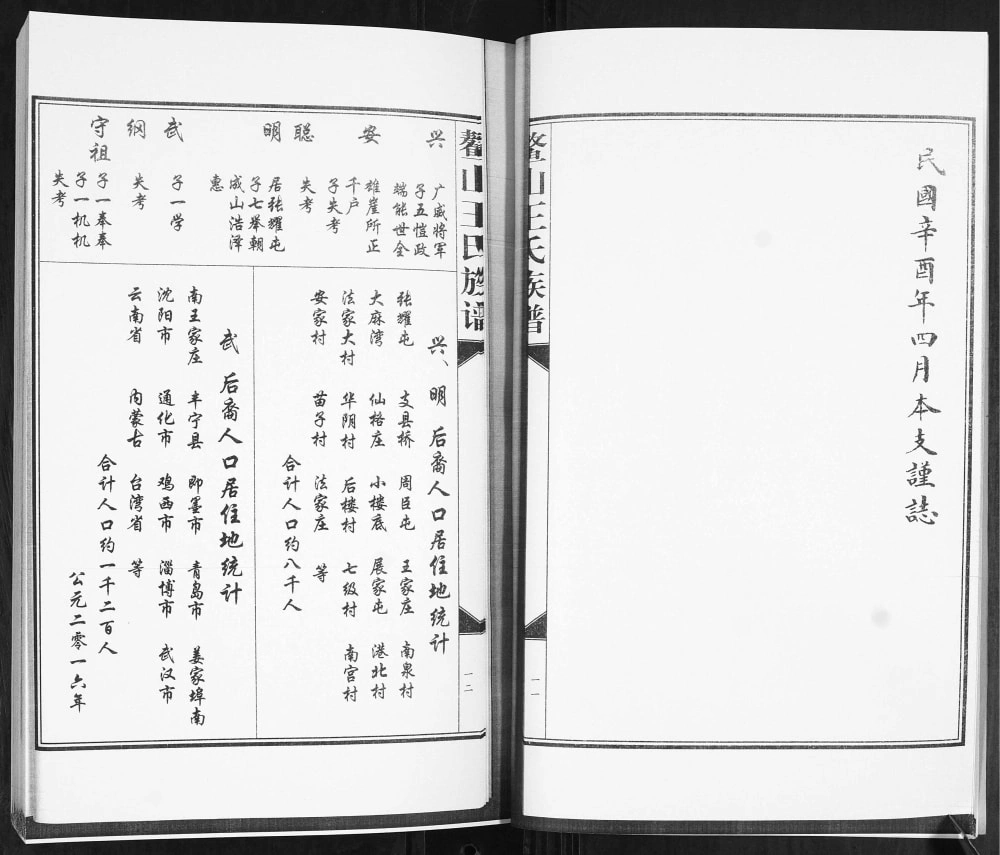 民國辛酉年四月本支謹誌
鳌山王氏族谱
一一
鳌山王氏族谱
一二
兴
广威将军
子五恺政
端能世全
安
雄崖所正
千户
子失考
聪
失考
明
居张耀屯
子七举朝
成山浩泽
惠
武
子一学
纲
失考
守祖
子一奉奉
子一机机
失考
兴、明 后裔人口居住地统计
张耀屯 支县桥 周臣屯 王家庄 南泉村
大麻湾 仙格庄 小楼底 展家屯 港北村
法家大村 华阴村 后楼村 七级村 南宫村
安家村 苗子村 法家庄 等
合计人口约八千人
武 后裔人口居住地统计
南王家庄 丰宁县 即墨市 青岛市 姜家埠南
沈阳市 通化市 鸡西市 淄博市 武汉市
云南省 内蒙古 台湾省 等
合计人口约一千二百人
公元二零一六年